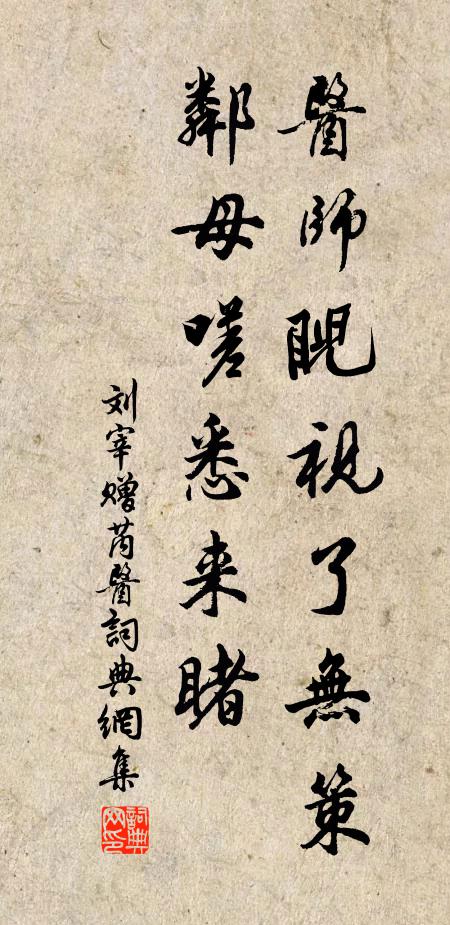 醫師睨視了無策
鄰母嗟悉来睹
刘宰赠芮醫詞典網集
詞典网印